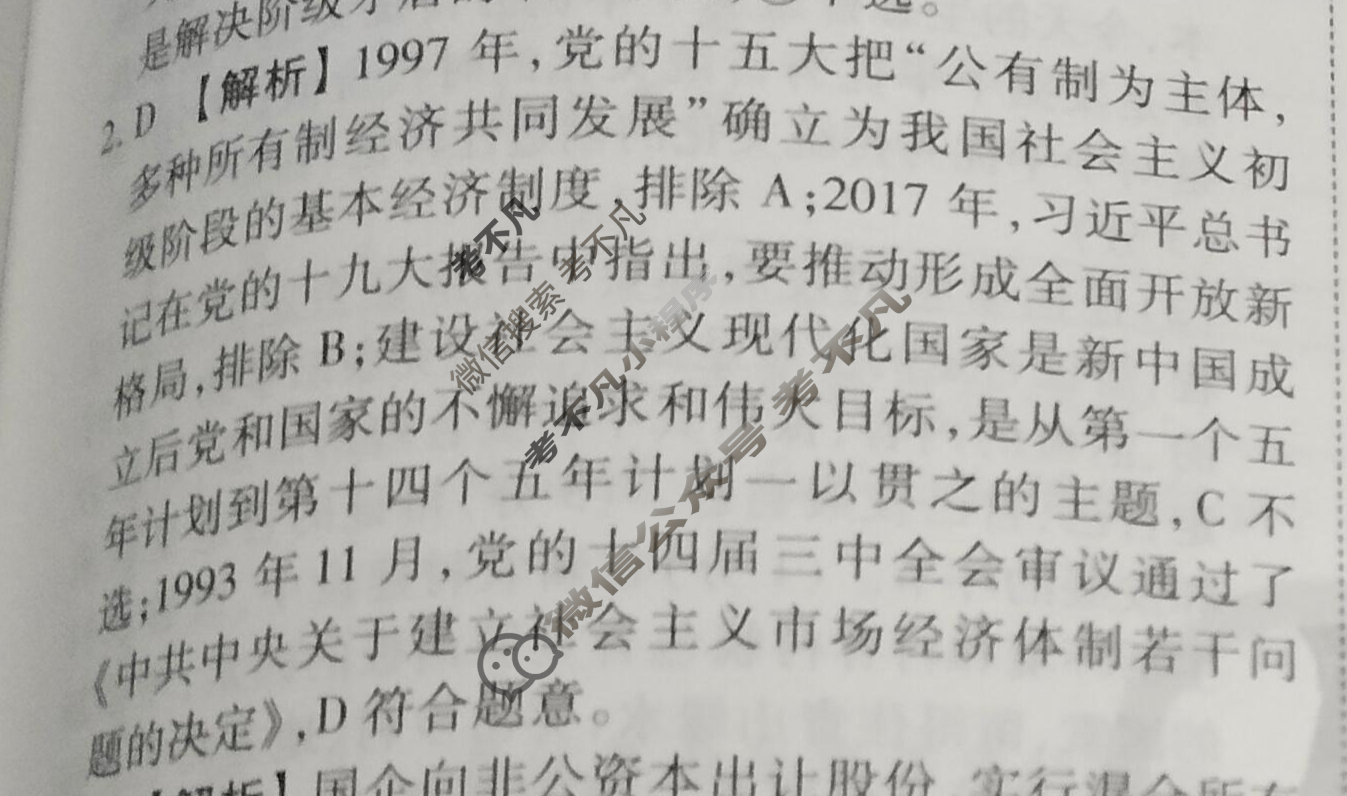 是解决阶级矛盾的
选。
2. D 【解析】1997 年，党的十五大把“公有制为主体，
多种所有制经济共同发展”确立为我国社会主义初
级阶段的基本经济制度，排除 A；2017 年，习近平总书
记在党的十九大报告中指出，要推动形成全面开放新
格局，排除 B；建设社会主义现代化国家是新中国成
立后党和国家的不懈追求和伟大目标，是从第一个五
年计划到第十四个五年计划一以贯之的主题，C 不
选；1993 年 11 月，党的十四届三中全会审议通过了
《中共中央关于建立社会主义市场经济体制若干问
题的决定》，D 符合题意。
【解析】国企向非公资本出让股份，实行混合所有
考不凡
微信搜索 考不凡
考不凡小程序
微信公众号 考不凡